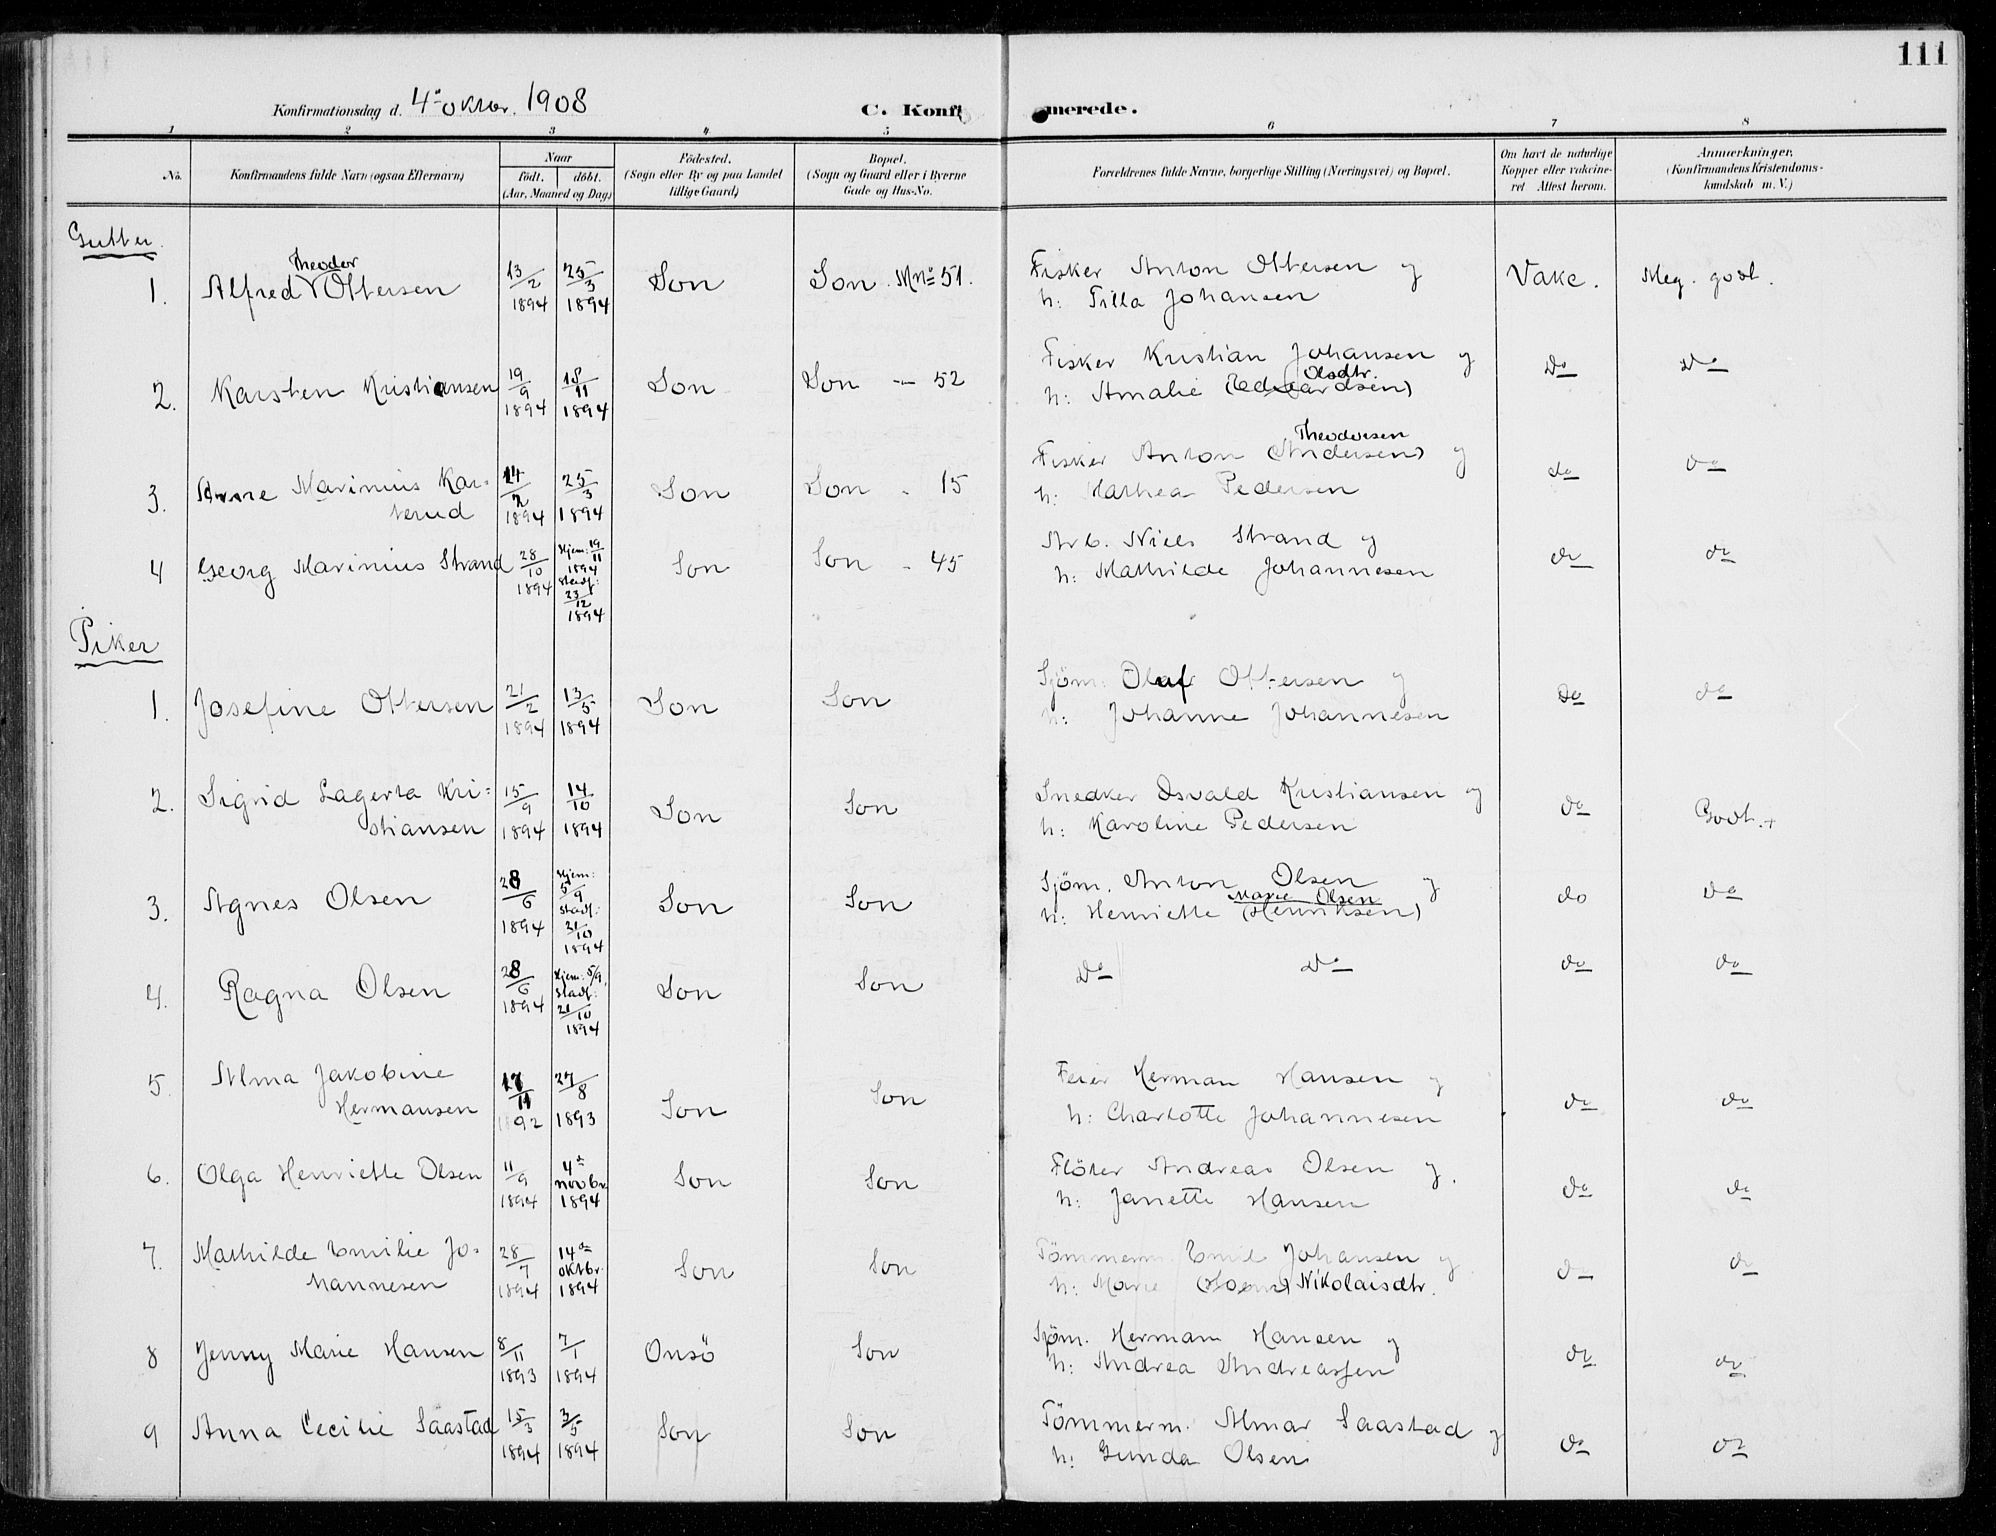 111
Konfirmationsdag d. 4de oktbr. 1908
C. Konfirmerede.
1 2 3 4 5 6 7 8
No.
Konfirmandens fulde Navn (ogsaa Efternavn)
Naar
födt. döbt.
(Aar, Maaned og Dag)
Födested.
(Sogn eller By og paa Landet
tillige Gaard)
Bopæl.
(Sogn og Gaard eller i Byerne
Gade og Hus-No.
Forældrenes fulde Navne, borgerlige Stilling (Næringsvei) og Bopæl.
Om havt de naturlige
Kopper eller vakcine-
ret Attest herom.
Anmærkninger.
(Konfirmandens Kristendoms-
kundskab m. V.)
Gutter
1. Alfred Theodor Ottersen 13/2 1894 25/3 1894 Son Son. Mno 51. Fisker Anton Ottersen og
h: Tilla Johansen Vakc. Meg. godt.
2. Karsten Kristiansen 19/9 1894 18/11 1894 Son Son — 52 Fisker Kristian Johansen og
h: Amalie (Edvardsen) Olsdtr. Do Do
3. Arne Marinius Kar-
terud 14/2 1894 25/3 1894 Son Son - 15 Fisker Anton (Andersen) Theodorsen og
h: Mathea Pedersen do do
4 Georg Marinius Strand 28/10 1894 Hjem: 19/11 1894 Stadf: 23/12 1894 Son Son - 45 Arb. Niels Strand og
h: Mathilde Johannesen do do
Piker
1. Josefine Ottersen 21/2 1894 13/5 1894 Son Son Sjöm. Olaf Ottersen og
h: Johanne Johannesen do do
2. Sigrid Lagerta Kri-
stiansen 15/9 1894 14/10 1894 Son Son Snedker Osvald Kristiansen og
h: Karoline Pedersen do Godt.+
3. Agnes Olsen 28/6 1894 Hjem: 5/9 Stadf: 21/10 1894 Son Son Sjöm. Anton Olsen og
h: Henriette (Henriksen) Marie Olsen do do
4. Ragna Olsen 28/6 1894 Hjem: 5/9. Stadf: 21/10 1894 Son Son Do Do do do
5. Alma Jakobine
Hermansen 17/11 1892 27/8 1893 Son Son Feier Herman Hansen og
h: Charlotte Johannesen do do
6. Olga Henriette Olsen 11/9 1894 4de novbr. 1894 Son Son Flöter Andreas Olsen og.
h: Janette Hansen do do
7. Mathilde Emilie Jo-
hannesen 28/7 1894 14de oktbr. 1894 Son Son Tömmerm. Emil Johansen og
h: Marie Nikolaisdtr. do do
8 Jenny Marie Hansen 8/11 1893 7/1 1894 Onsö Son Sjöm. Herman Hansen og
h: Andrea Andreassen do do
9 Anna Cecilie Saastad 15/3 1894 3/5 1894 Son Son Tömmerm. Almar Saastad og
h: Gunda Olsen do do